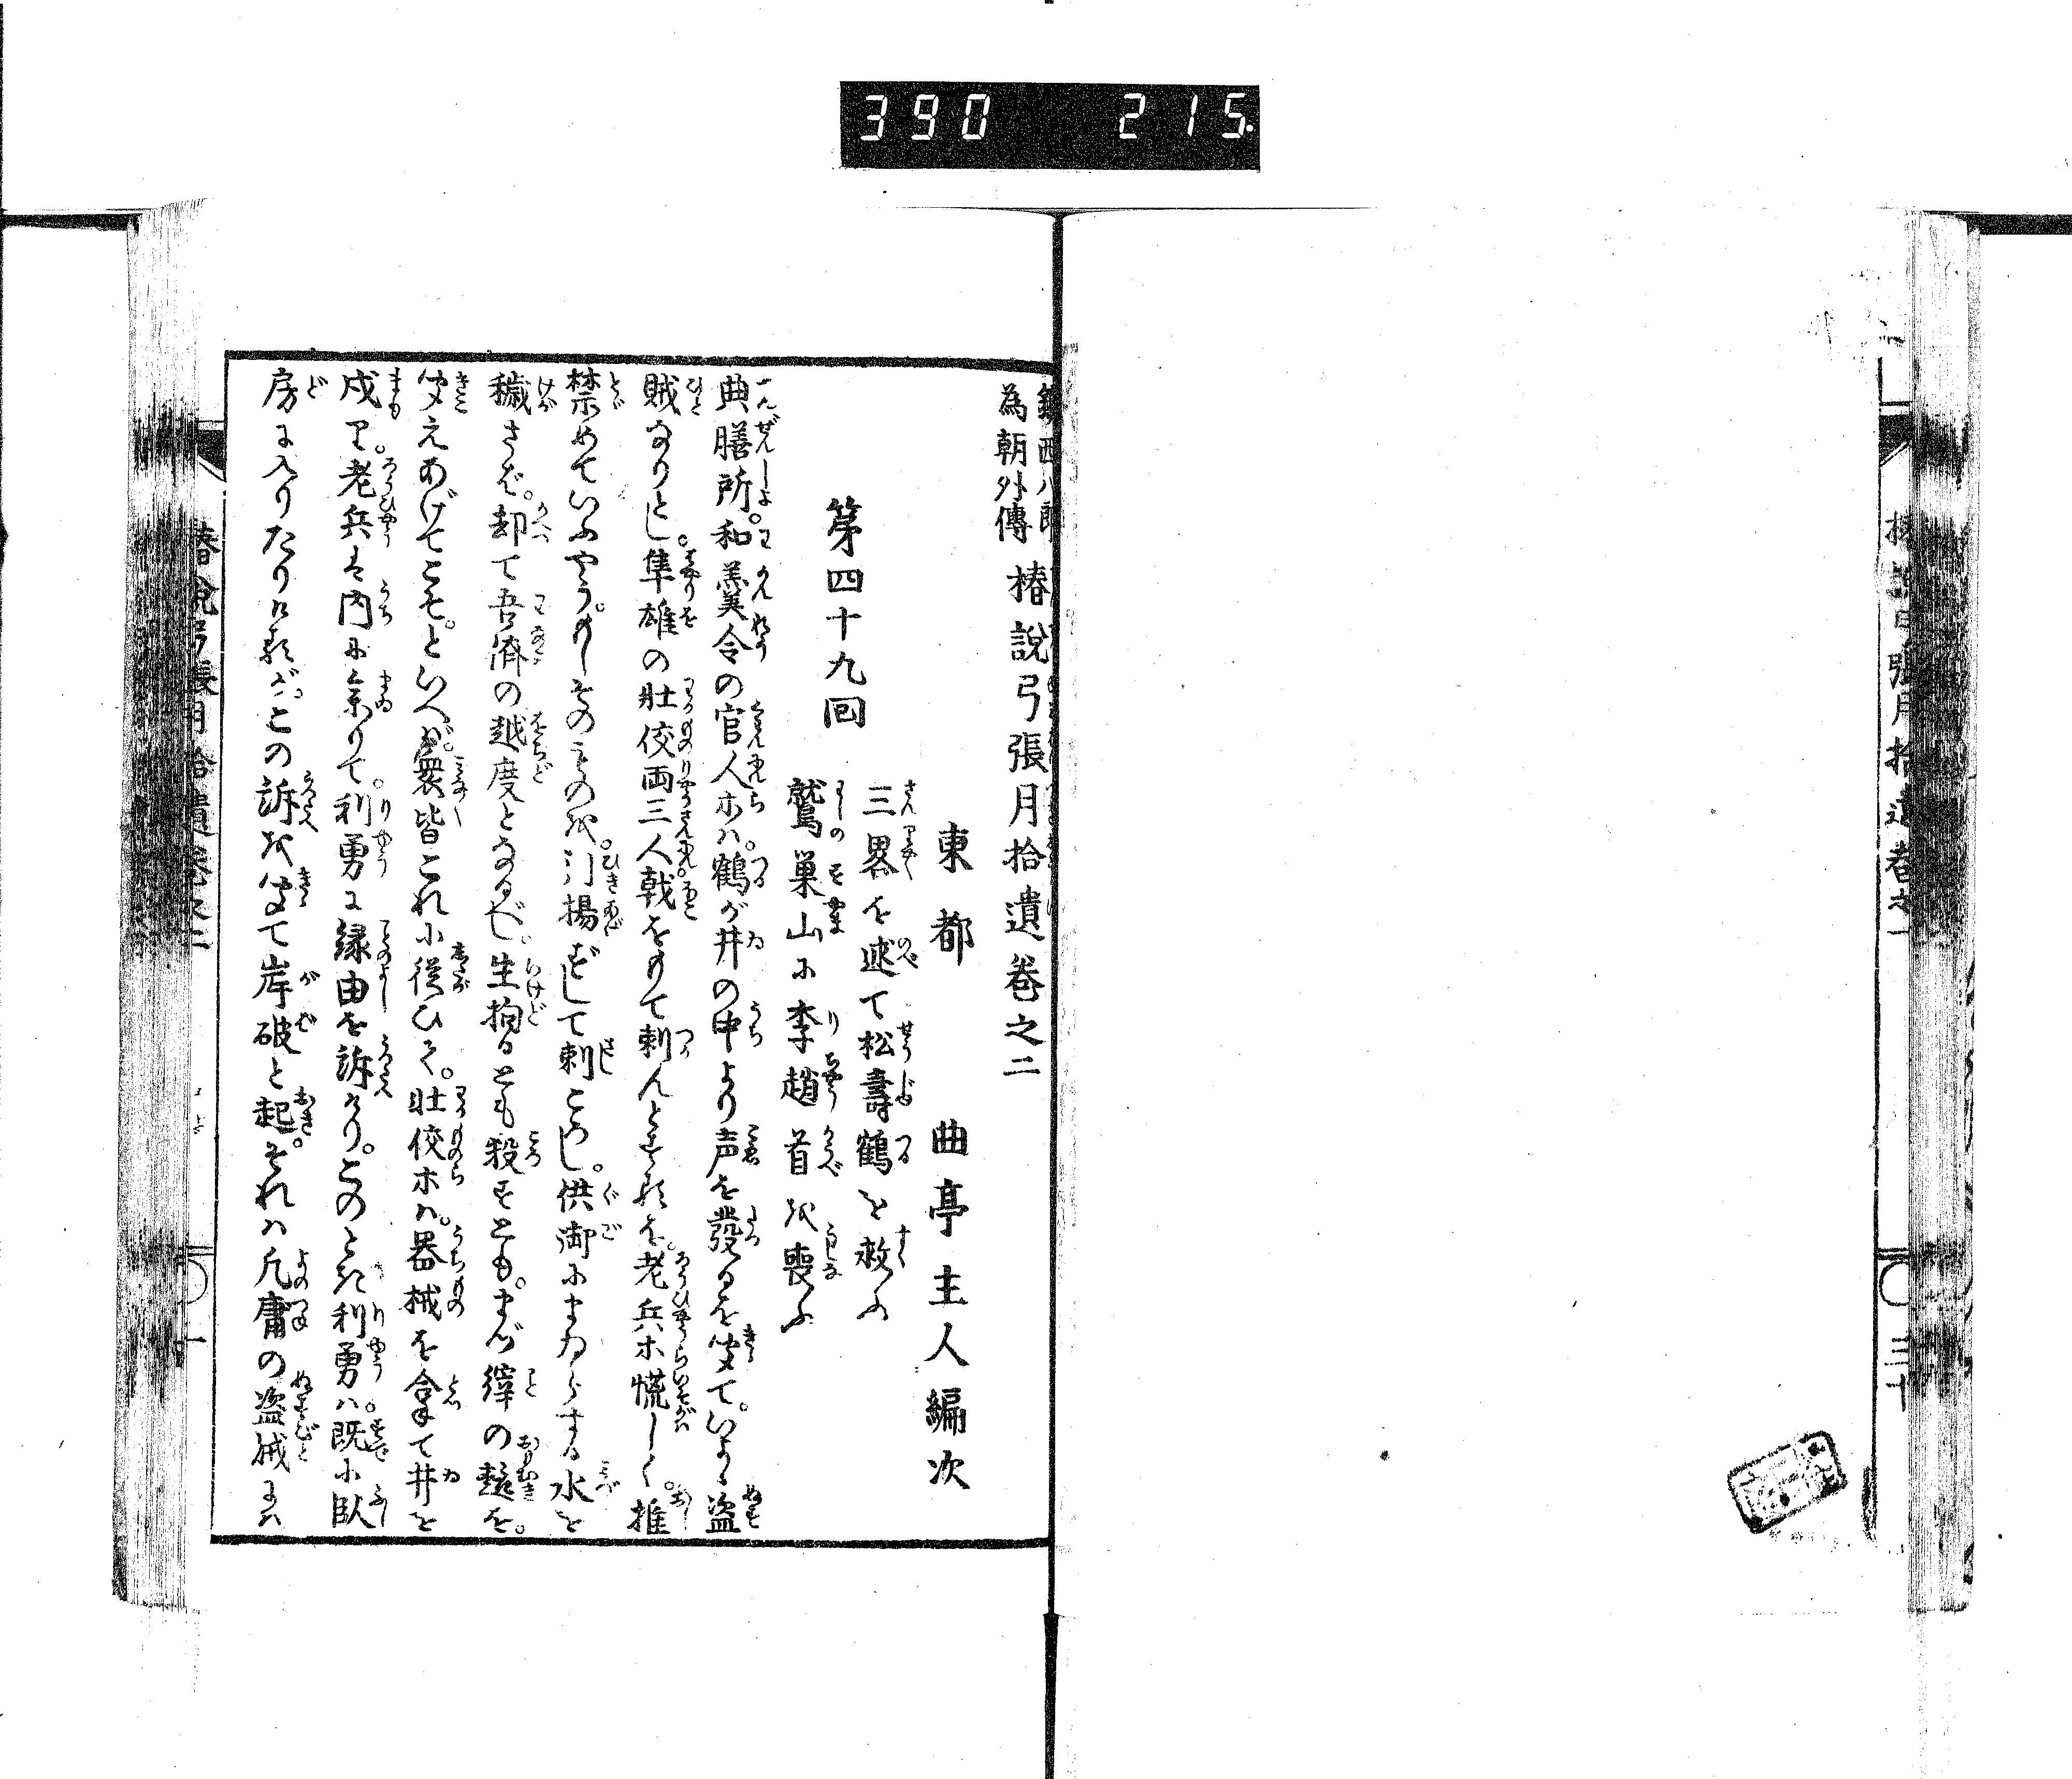 390 215.
鎮西八郎
為朝外傳
椿說弓張月拾遺卷之二
東都 曲亭主人編次
第四十九回
三畧を述て松壽鶴を救ふ
鷲巣山に李趙首を喪ふ
典膳所。和羹令の官人ホハ。鶴が井の中より声を發るを聞て。いよゝ盗
賊なりとし。隼雄の壮佼両三人戟をもて刺んとするを。老兵ホ慌しく。推
禁めていふやう。もしそのものを。引揚ずして刺ころし。供御にまゐらする水を
穢さば。却て吾儕の越度となるべし。生拘るとも殺すとも。まづ縡の趣を。
聞えあげてこそ。といへば。衆皆これに從ひて。壮佼ホハ。器械を拿て井を
戍り。老兵は内に参りて。利勇に縁由を訴けり。このとき利勇ハ。既に臥
房に入りたりければ。この訴を聞て岸破と起。それハ凡庸の盗賊にハ
椿說弓張月拾遺卷之二
一
椿說弓張月拾遺卷之一
三十